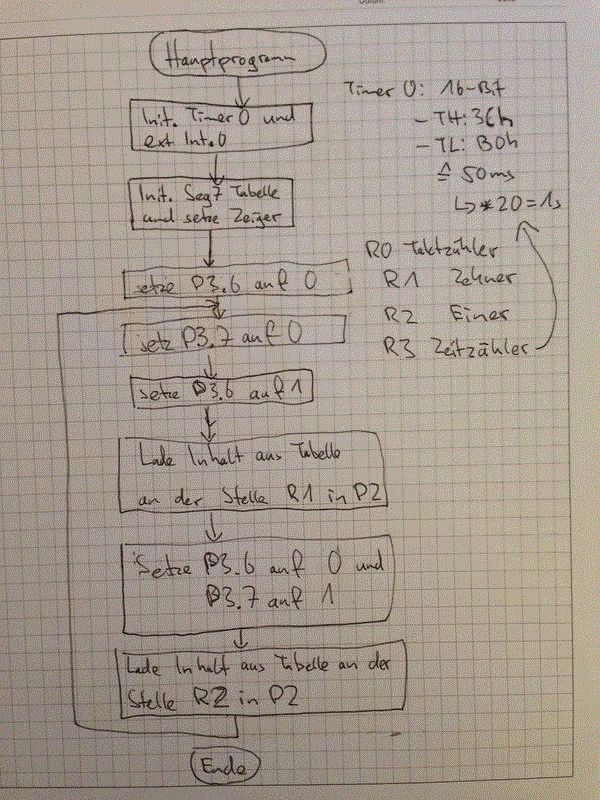 Hauptprogramm
Init. Timer 0 und
ext Int. 0
Init. Seg7 Tabelle
und setze Zeiger
setze P3.6 auf 0
setz P3.7 auf 0
setze P3.6 auf 1
Lade Inhalt aus Tabelle
an der Stelle R1 in P2
Setze P3.6 auf 0 und
P3.7 auf 1
Lade Inhalt aus Tabelle an der
Stelle R2 in P2
Ende
Timer 0: 16-Bit
- TH: 3Ch
- TL: B0h
≙ 50ms
↳ *20 = 1s
R0 Taktzähler
R1 Zehner
R2 Einer
R3 Zeitzähler